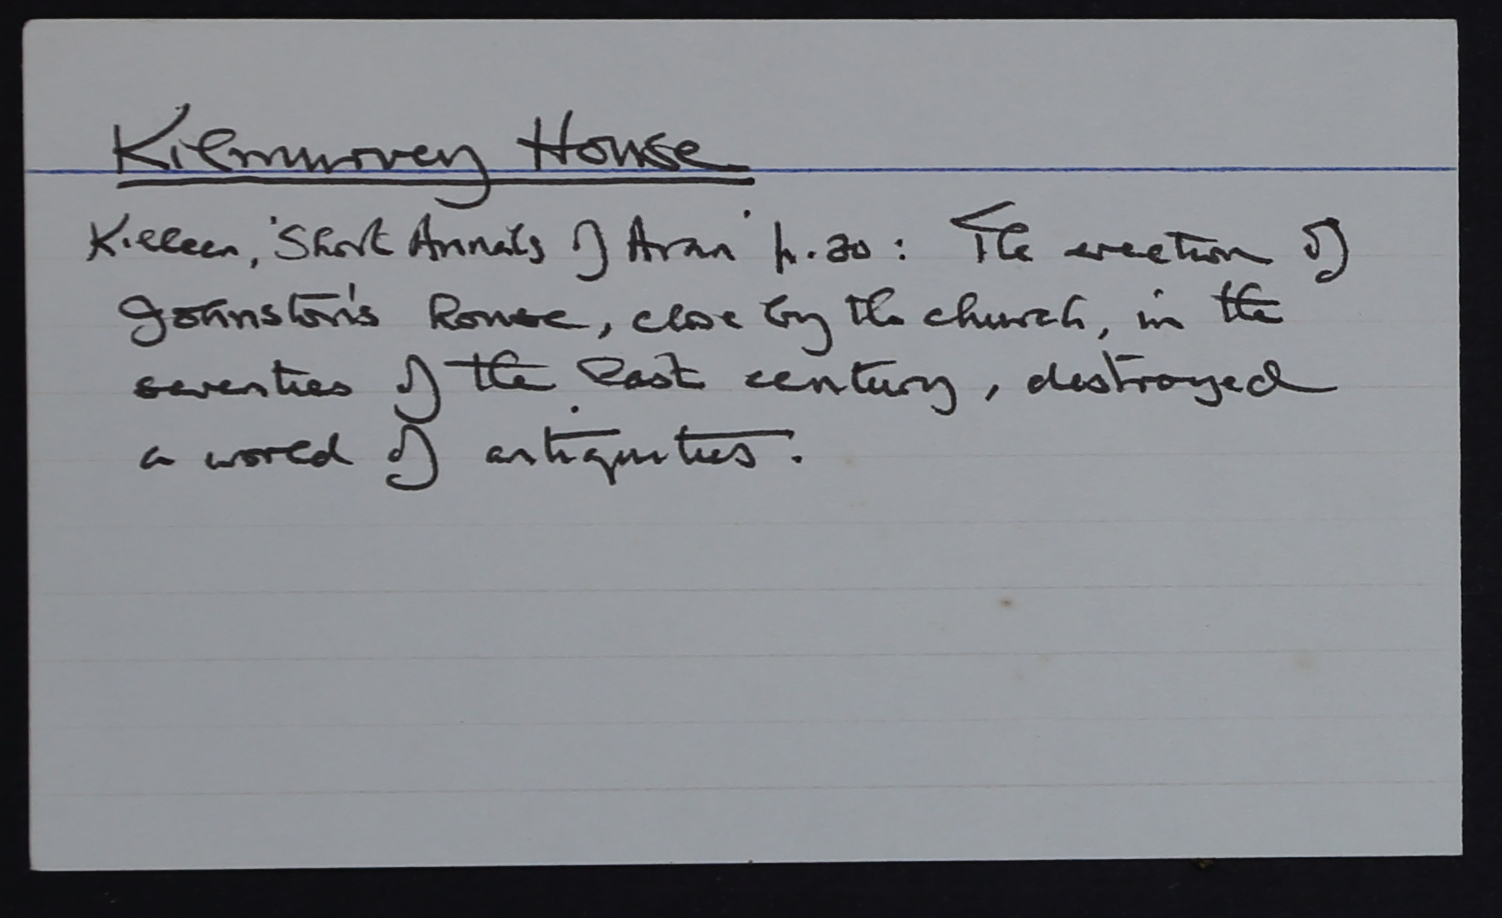 Kilmurvey House
Killeen, 'Short Annals of Aran' p. 20: The erection of
Johnston's house, close by the church, in the
seventies of the last century, destroyed
a world of antiquities.